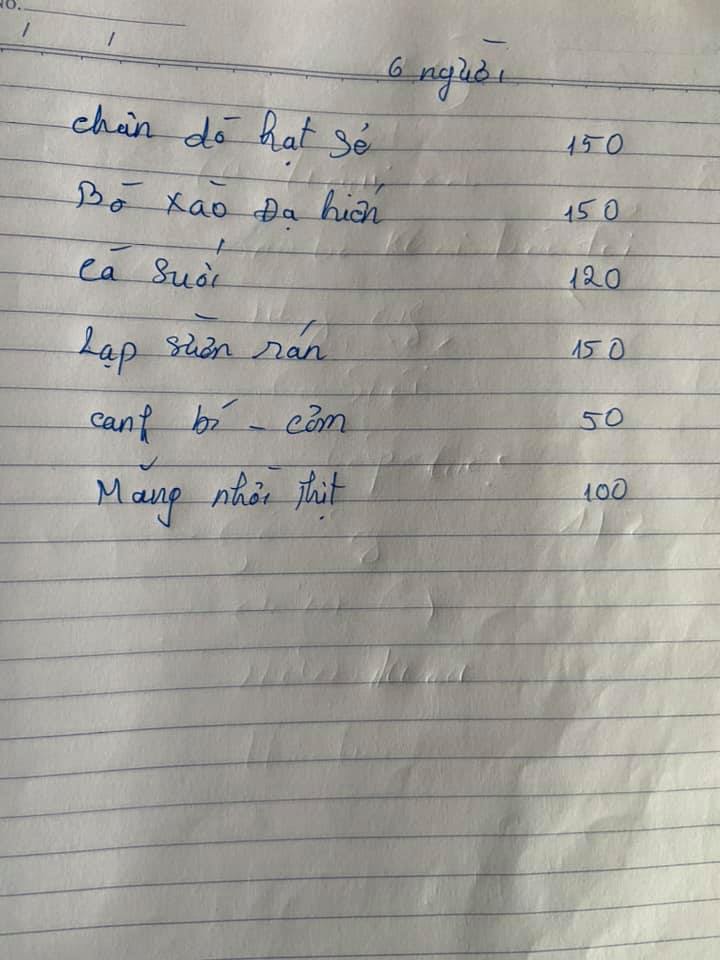 No.
/ /
6 người
Chân dò hạt sẻ 150
Bò xào Dạ hiến 150
Cá suối 120
Lạp sườn rán 150
canh bí - cơm 50
Măng nhồi thịt 100